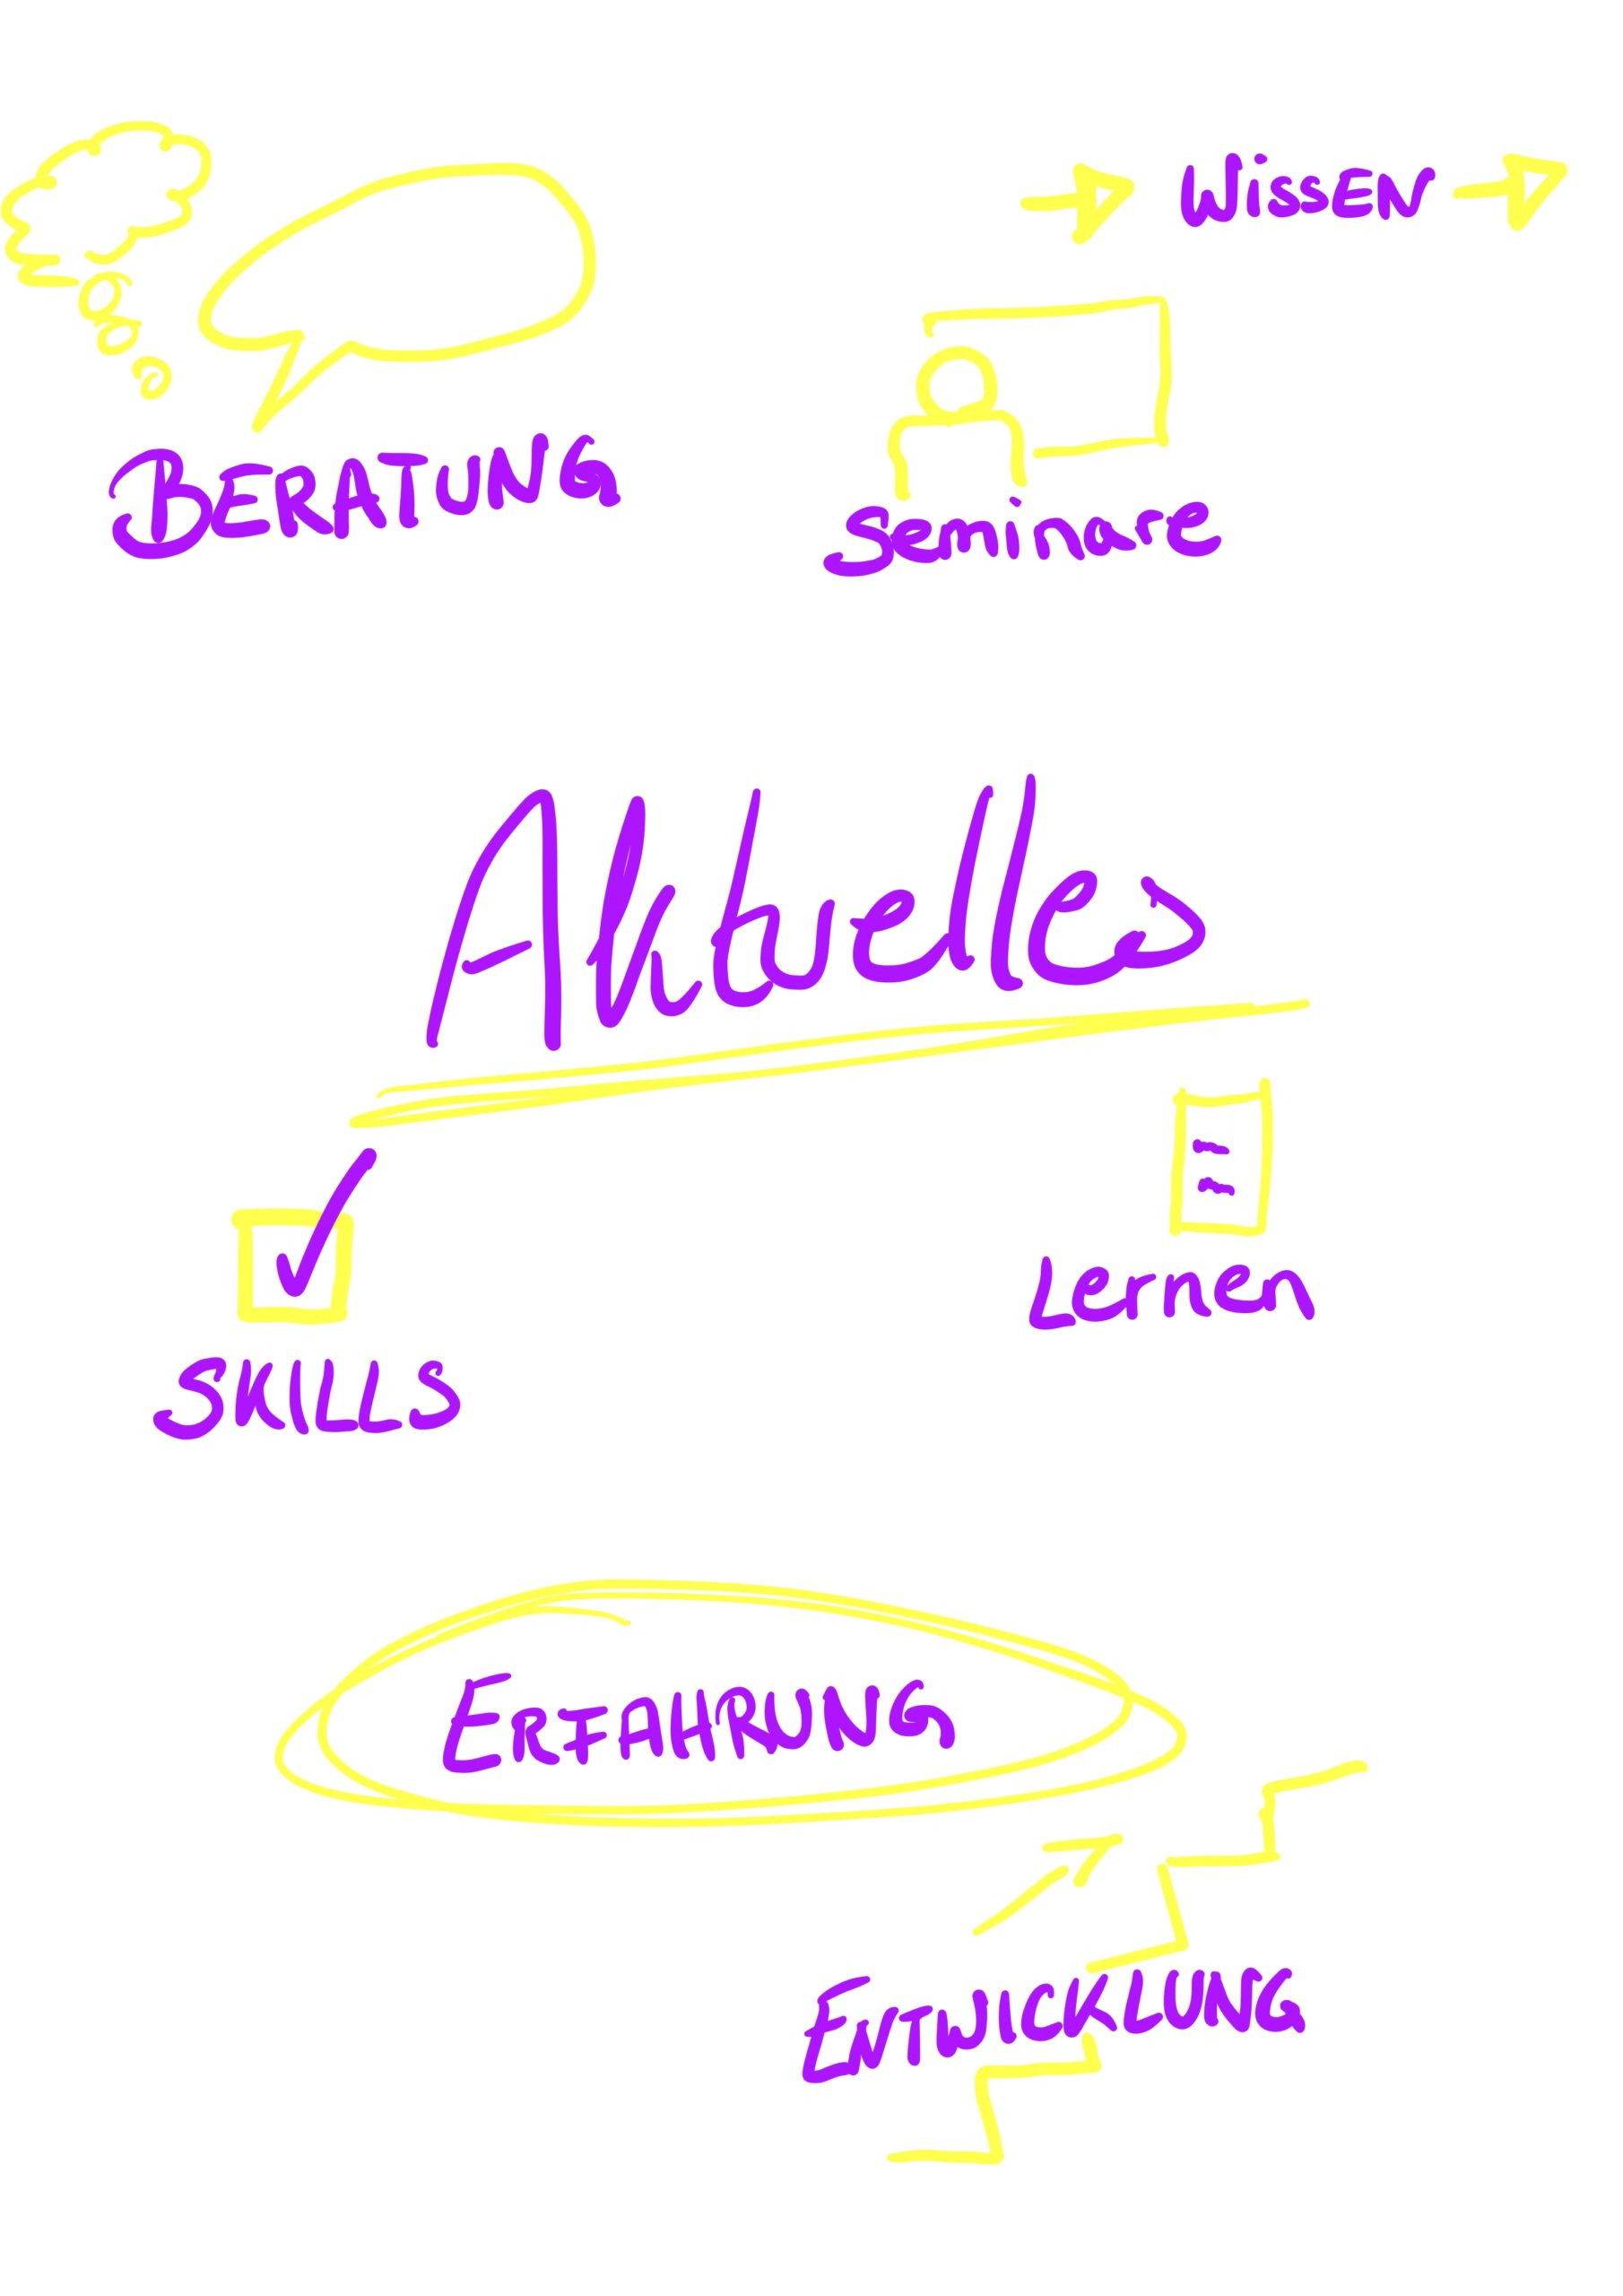 Wissen
BERATUNG
Seminare
Aktuelles
Lernen
SKILLS
ERFAHRUNG
ENTWICKLUNG